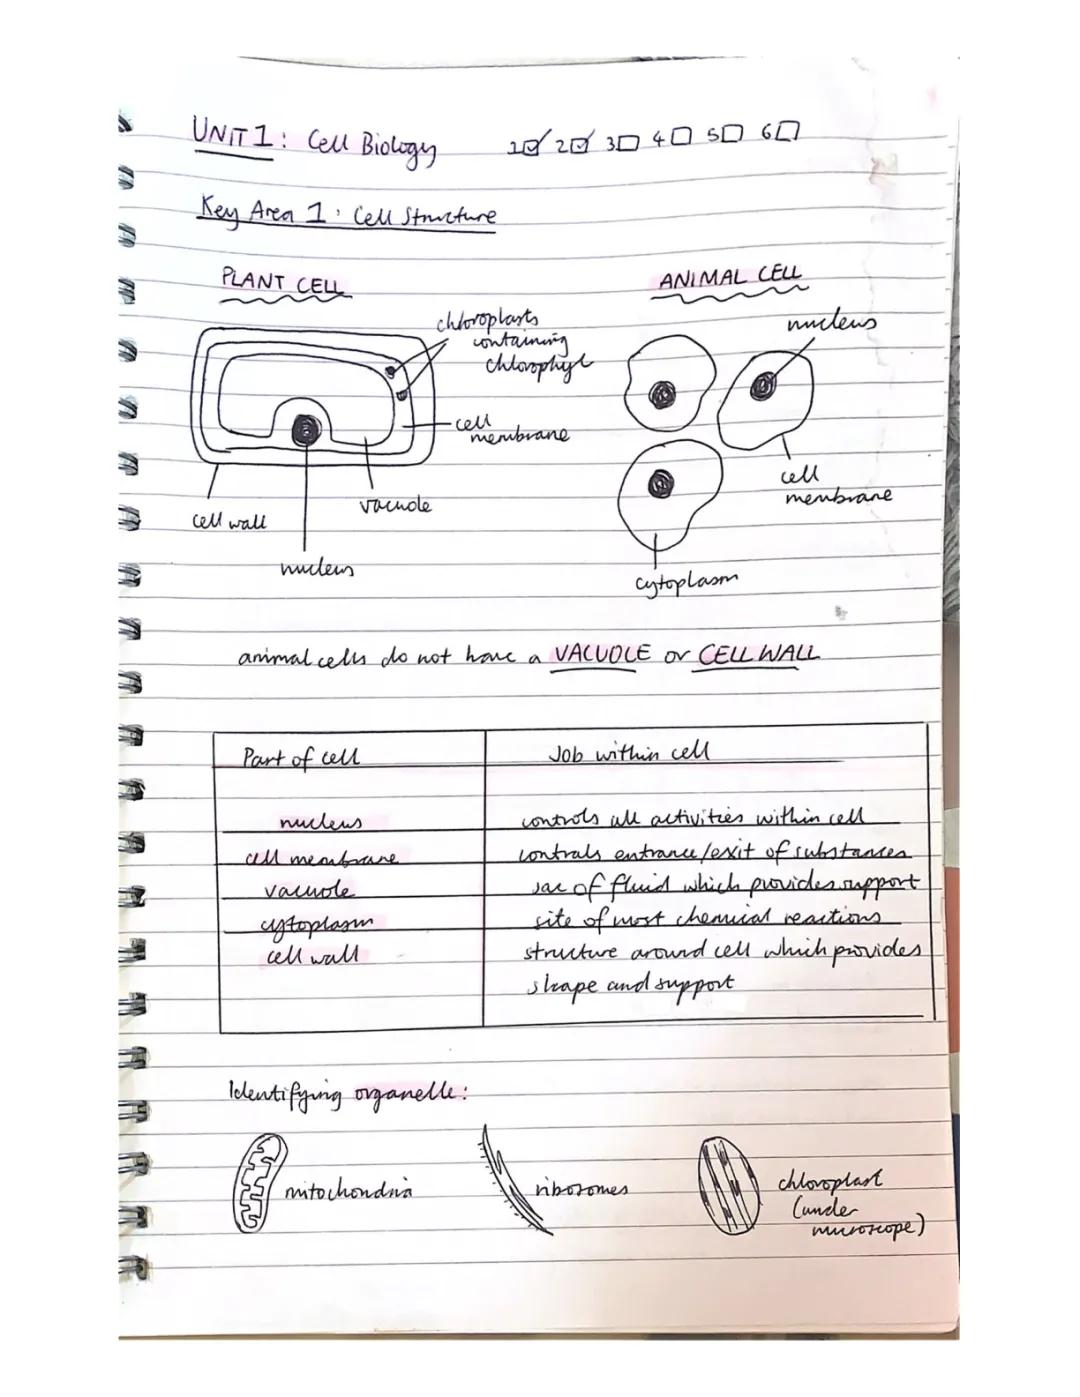 UNIT 1: Cell Biology 1☑ 2☑ 3☐ 4☐ 5☐ 6☐
Key Area 1: Cell Structure
PLANT CELL
ANIMAL CELL
chloroplasts
containing
chlorophyl
nucleus
cell
membrane
cell
membrane
vacuole
cell wall
nucleus
cytoplasm
animal cells do not have a VACUOLE or CELL WALL
Part of cell Job within cell
nucleus controls all activities within cell
cell membrane controls entrance/exit of substances
vacuole sac of fluid which provides support
cytoplasm site of most chemical reactions
cell wall structure around cell which provides
shape and support
Identifying organelle:
mitochondria
ribosomes
chloroplast
(under
microscope)